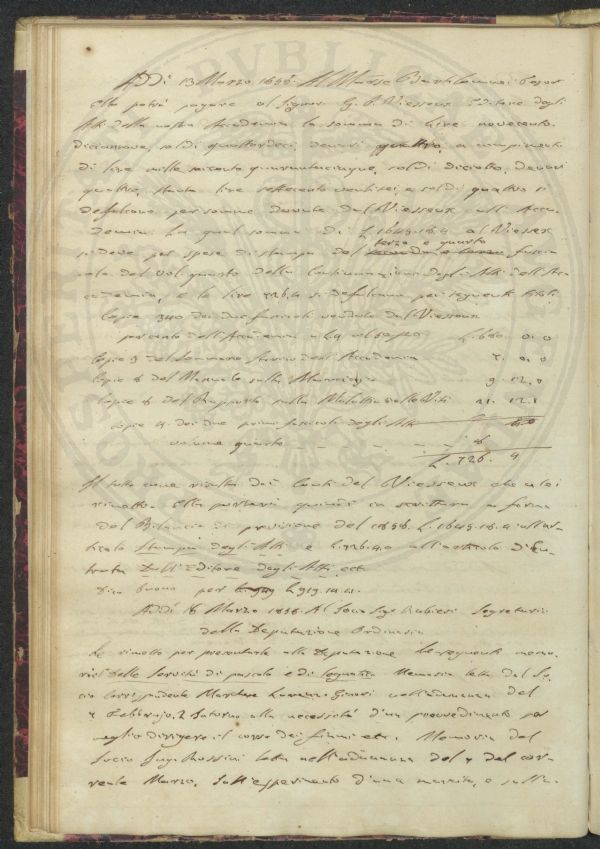 Addì 13 Marzo 1856. Al March. Bartolommei Cassiere
Ella potrà pagare al Signor G. P. Vieusseux Editore degli
Atti della nostra Accademia la somma di Lire novecento
diciannove, soldi quattordici, denari quattro, a compimento
di lire mille seicento quarantacinque, soldi diciotto, denari
quattro, stante lire settecento ventisei, e soldi quattro si
defalcano per somme dovute dal Vieusseux all' Acca-
demia. La qual somma di L. 1645.18.4 al Vieusseux
si deve per spese di stampa del terzo e quarto fasci-
colo del Vol. quarto della Continuazione degli Atti dell' Ac-
cademia, e le lire 726.4 si defalcano pei seguenti titoli
Copie 340 dei due fascicoli venduti dal Vieusseux
per conto dell' Accademia
Copie 3 del Sommario Storico degli Accademia
Copie 6 del Manuale sulla
Copie 6 del Rapporto sulla Malattia delle Viti 21. 12.
Copie 4 dei due primi fascicoli degli Atti
volume quarto
L. 726. 4
Il tutto come risulta dai Conti del Vieusseux che a lei
rimetto. Ella porterà quindi in scrittura a forma
del Bilancio di previsione del 1856. L. 1645.18.4 all' ar-
ticolo Stampa degli Atti e L. 726.4.0 all' articolo d' En-
trata Dall' Editore degli Atti ect.
Dico buono per L. 919.14.4.
Addì 16 Marzo 1856. Al Socio Sigr. Rubieri Segretario
della Deputazione Ordinaria
Le rimetto per presentarle alla Deputazione le seguenti memo-
rie. Delle Servitù di pascolo e di legnatico Memoria letta dal So-
cio Corrispondente Marchese Lorenzo Ginori nell' adunanza del
Febbrajo. 2 Intorno alla necessità d' un provvedimento per
meglio dirigere il corso dei fiumi etc. Memoria del
Socio Ing. Rossini letta nell' adunanza del 7 del cor-
rente Marzo. Sull' esperimento d' una macchina, e sulla